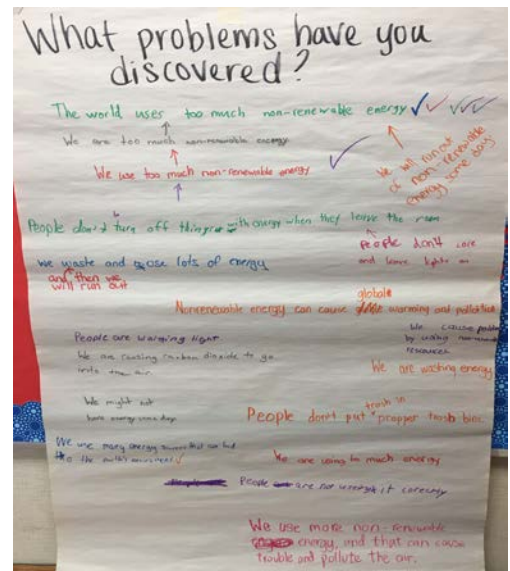 What problems have you
discovered?
The world uses too much non-renewable energy
We are too much non-renewable energy
We use too much non-renewable energy
We will run out
of non-renewable
energy some day
People don't turn off things with energy when they leave the room
People don't care
and leave lights on
we waste and lots of energy
and then we
will run out
global
Nonrenewable energy can cause warming and pollution
People are warming light
We cause
by using
resources
We are causing carbon dioxide to go
into the air
We are wasting energy
We might not
have energy some day
trash in
People don't put propper trash bin.
We use many energy that are bad
to the earth's
We are using to much energy
People are not it correctly
We use more non-renewable
energy, and that can cause
trouble and pollute the air.